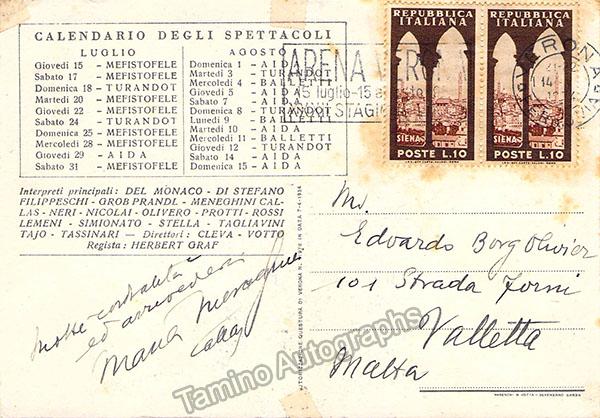 CALENDARIO DEGLI SPETTACOLI
LUGLIO
Giovedì 15 - MEFISTOFELE
Sabato 17 - MEFISTOFELE
Domenica 18 - TURANDOT
Martedì 20 - MEFISTOFELE
Giovedì 22 - MEFISTOFELE
Sabato 24 - TURANDOT
Domenica 25 - MEFISTOFELE
Mercoledì 28 - MEFISTOFELE
Giovedì 29 - AIDA
Sabato 31 - MEFISTOFELE
AGOSTO
Domenica 1 - AIDA
Martedì 3 - TURANDOT
Mercoledì 4 - BALLETTI
Giovedì 5 - AIDA
Sabato 7 - AIDA
Domenica 8 - TURANDOT
Lunedì 9 - BALLETTI
Martedì 10 - AIDA
Mercoledì 11 - BALLETTI
Giovedì 12 - TURANDOT
Sabato 14 - AIDA
Domenica 15 - AIDA
Interpreti principali: DEL MONACO - DI STEFANO
FILIPPESCHI - GROB PRANDL - MENEGHINI CAL-
LAS - NERI - NICOLAI - OLIVERO - PROTTI - ROSSI
LEMENI - SIMIONATO - STELLA - TAGLIAVINI
TAJO - TASSINARI - Direttori: CLEVA - VOTTO
Regista: HERBERT GRAF
Molte cordialità
ed arrivederci
Maria Meneghini
Callas
REPUBBLICA
ITALIANA
SIENA
POSTE L.10
REPUBBLICA
ITALIANA
SIENA
POSTE L.10
ARENA
VERONA
Mr.
Edoardo Borg Olivier
101 Strada Forni
Valletta
Malta
Tamino Autographs